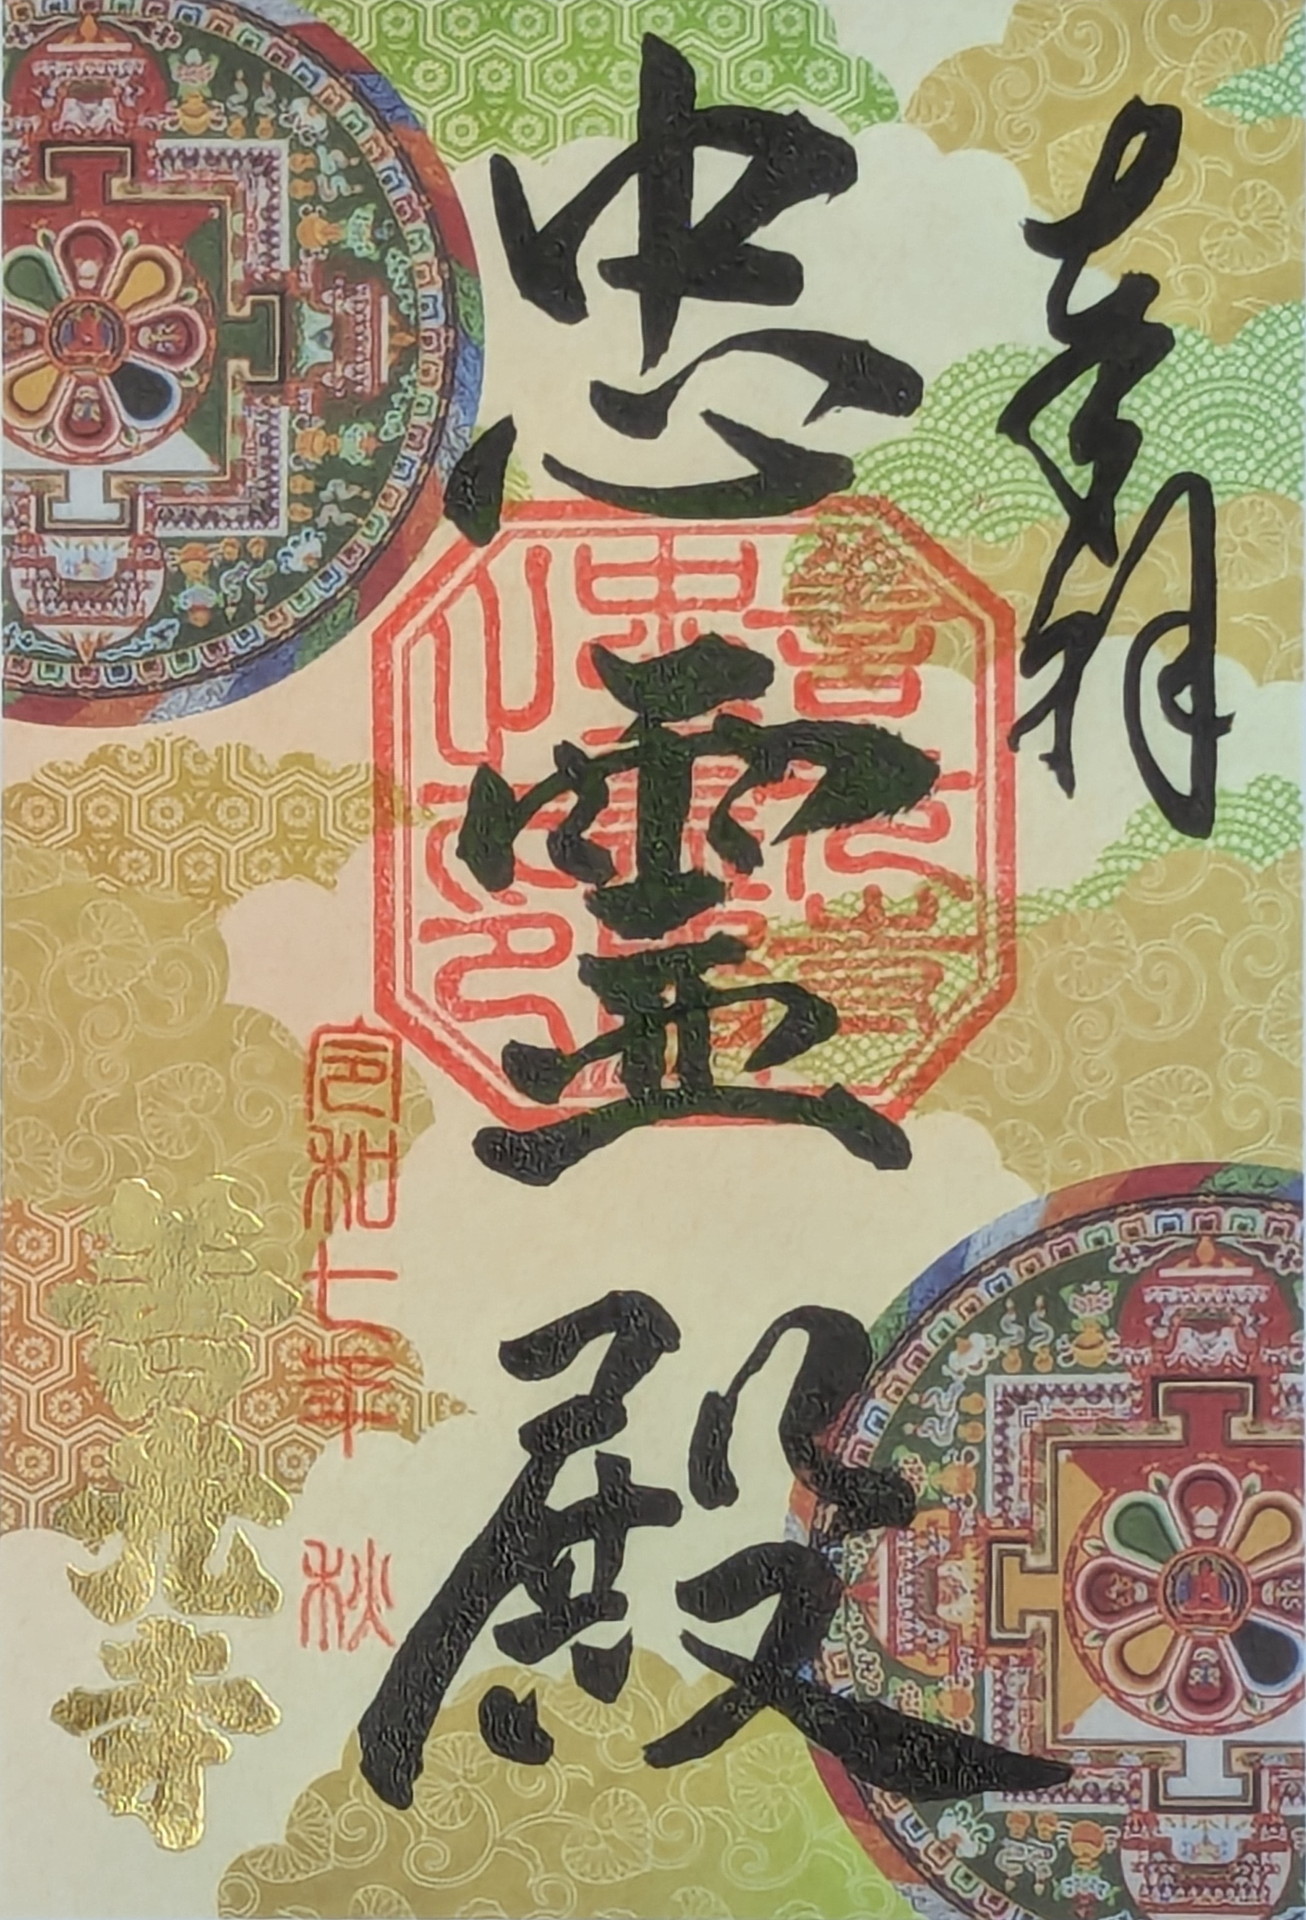 奉拝
忠霊殿
令和七年 秋
善光寺